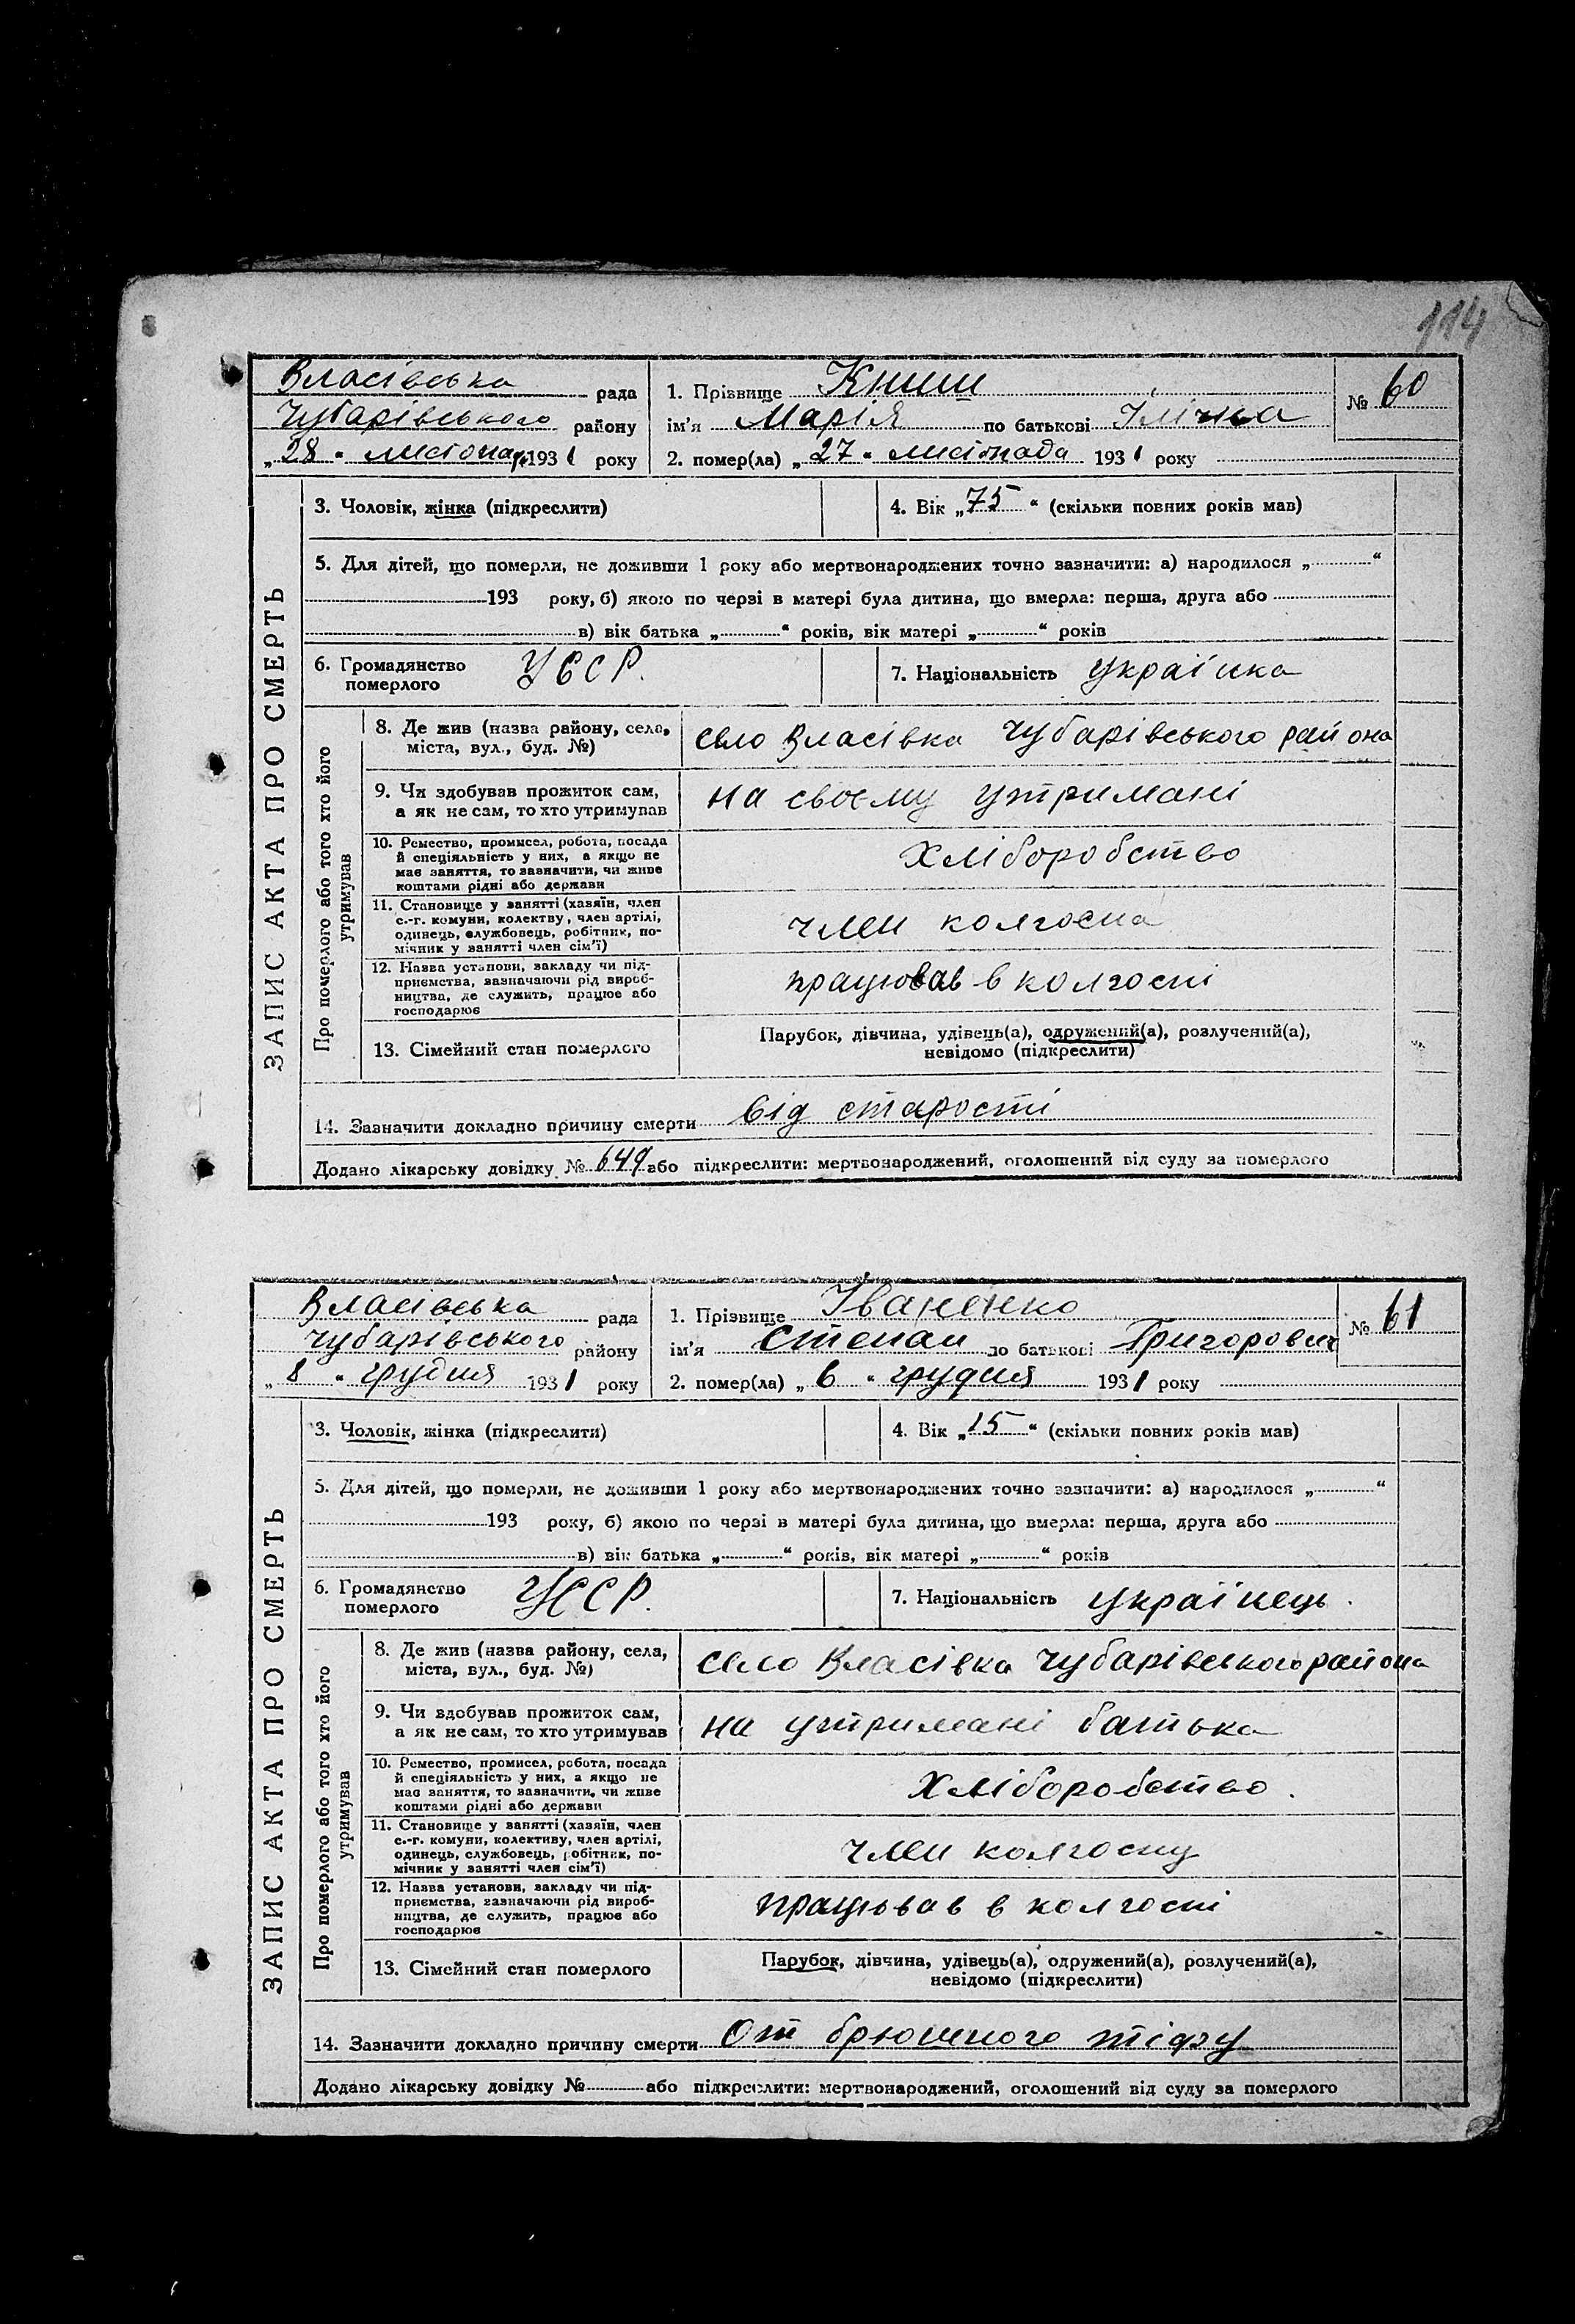 114
Власівська рада
Чубарівського району
„28“ листопа 1931 року
1. Прізвище Книш
ім'я Марія по батькові Ілічна
2. помер(ла) „27“ листопада 1931 року
№ 60
ЗАПИС АКТА ПРО СМЕРТЬ
3. Чоловік, жінка (підкреслити)
4. Вік „75“ (скільки повних років мав)
5. Для дітей, що померли, не доживши 1 року або мертвонароджених точно зазначити: а) народилося „ “
193 року, б) якою по черзі в матері була дитина, що вмерла: перша, друга або
в) вік батька „ “ років, вік матері „ “ років
6. Громадянство
померлого
УССР.
7. Національність українка
Про померлого або того хто його
утримував
8. Де жив (назва району, села,
міста, вул., буд. №)
село Власівка Чубарівського района
9. Чи здобував прожиток сам,
а як не сам, то хто утримував
на своєму утримані
10. Ремество, промисел, робота, посада
й спеціяльність у них, а якщо не
має заняття, то зазначити, чи живе
коштами рідні або держави
Хліборобство
11. Становище у занятті (хазяїн, член
с.-г. комуни, колектву, член артілі,
одинець, службовець, робітник, по-
мічник у занятті член сім'ї)
член колгоспа
12. Назва установи, закладу чи під-
приємства, зазначаючи рід вироб-
ництва, де служить, працює або
господарює
працював в колгоспі
13. Сімейний стан померлого
Парубок, дівчина, удівець(а), одружений(а), розлучений(а),
невідомо (підкреслити)
14. Зазначити докладно причину смерти від старості
Додано лікарську довідку № 649 або підкреслити: мертвонароджений, оголошений від суду за померлого
Власівська рада
Чубарівського району
„8“ грудня 1931 року
1. Прізвище Іваненко
ім'я Степан по батькові Григорович
2. помер(ла) „6“ грудня 1931 року
№ 61
ЗАПИС АКТА ПРО СМЕРТЬ
3. Чоловік, жінка (підкреслити)
4. Вік „15“ (скільки повних років мав)
5. Для дітей, що померли, не доживши 1 року або мертвонароджених точно зазначити: а) народилося „ “
193 року, б) якою по черзі в матері була дитина, що вмерла: перша, друга або
в) вік батька „ “ років, вік матері „ “ років
6. Громадянство
померлого
УССР.
7. Національність українець.
Про померлого або того хто його
утримував
8. Де жив (назва району, села,
міста, вул., буд. №)
село Власівка Чубарівського района
9. Чи здобував прожиток сам,
а як не сам, то хто утримував
на утримані батька
10. Ремество, промисел, робота, посада
й спеціяльність у них, а якщо не
має заняття, то зазначити, чи живе
коштами рідні або держави
Хліборобство.
11. Становище у занятті (хазяїн, член
с.-г. комуни, колективу, член артілі,
одинець, службовець, робітник, по-
мічник у занятті член сім'ї)
член колгоспу
12. Назва установи, закладу чи під-
приємства, зазначаючи рід вироб-
ництва, де служить, працює або
господарює
працював в колгоспі
13. Сімейний стан померлого
Парубок, дівчина, удівець(а), одружений(а), розлучений(а),
невідомо (підкреслити)
14. Зазначити докладно причину смерти От брюшного тіфу
Додано лікарську довідку № або підкреслити: мертвонароджений, оголошений від суду за померлого